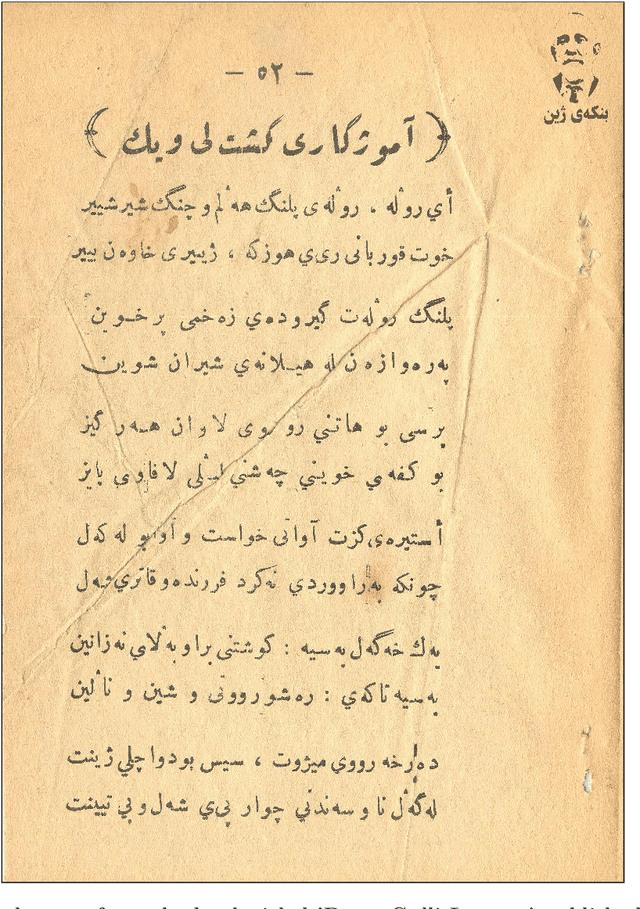 — ٥٢ —
بنکەی ژین
﴿ آموژگاری گشت لی ویك ﴾
أي رولە . رولەی پلنگ هەلم و چنگ شیر شییر
خوت قوربانی ری‌ي هوزکە ، ژییری خاوەن بییر
پلنگ رولەت گیرودەي زەخمی پرخوین
پەرەوازەن لە هیلانەي شیران شوین
پرسی بو هاتني رو وی لاوان هەرگیز
بو کفەي خویني چەشني لافاوی پایز
أستیرەی گزت آوانی خواست و آوابو لە کەل
چونکە بەراووردي نەکرد فررندە و قاتري
یەك خەگەل بەسیە : کوشتنی براو بەلاي نەزانین
بەسیە تاکەي : رەشوروونی و شین و نالین
دەرخە رووی میژوت ، سیس بودوا چلي ژینت
لەگەل نا و سەندني چوار پی‌ي شەل و بي تیینت